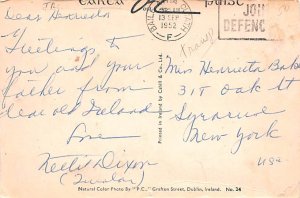 Cárta puist
BAILE
13 SEP
1952
F
JOIN
DEFENC
Dear Henrietta
Greetings to
you and your
father from
dear old Ireland
Love
Dixon
Miss Henrietta
315 Oak St
Syracuse
New York
USA
Printed in Ireland by Cahill & Co. Ltd.
Natural Color Photo By "P.C." Grafton Street, Dublin, Ireland. No. 24